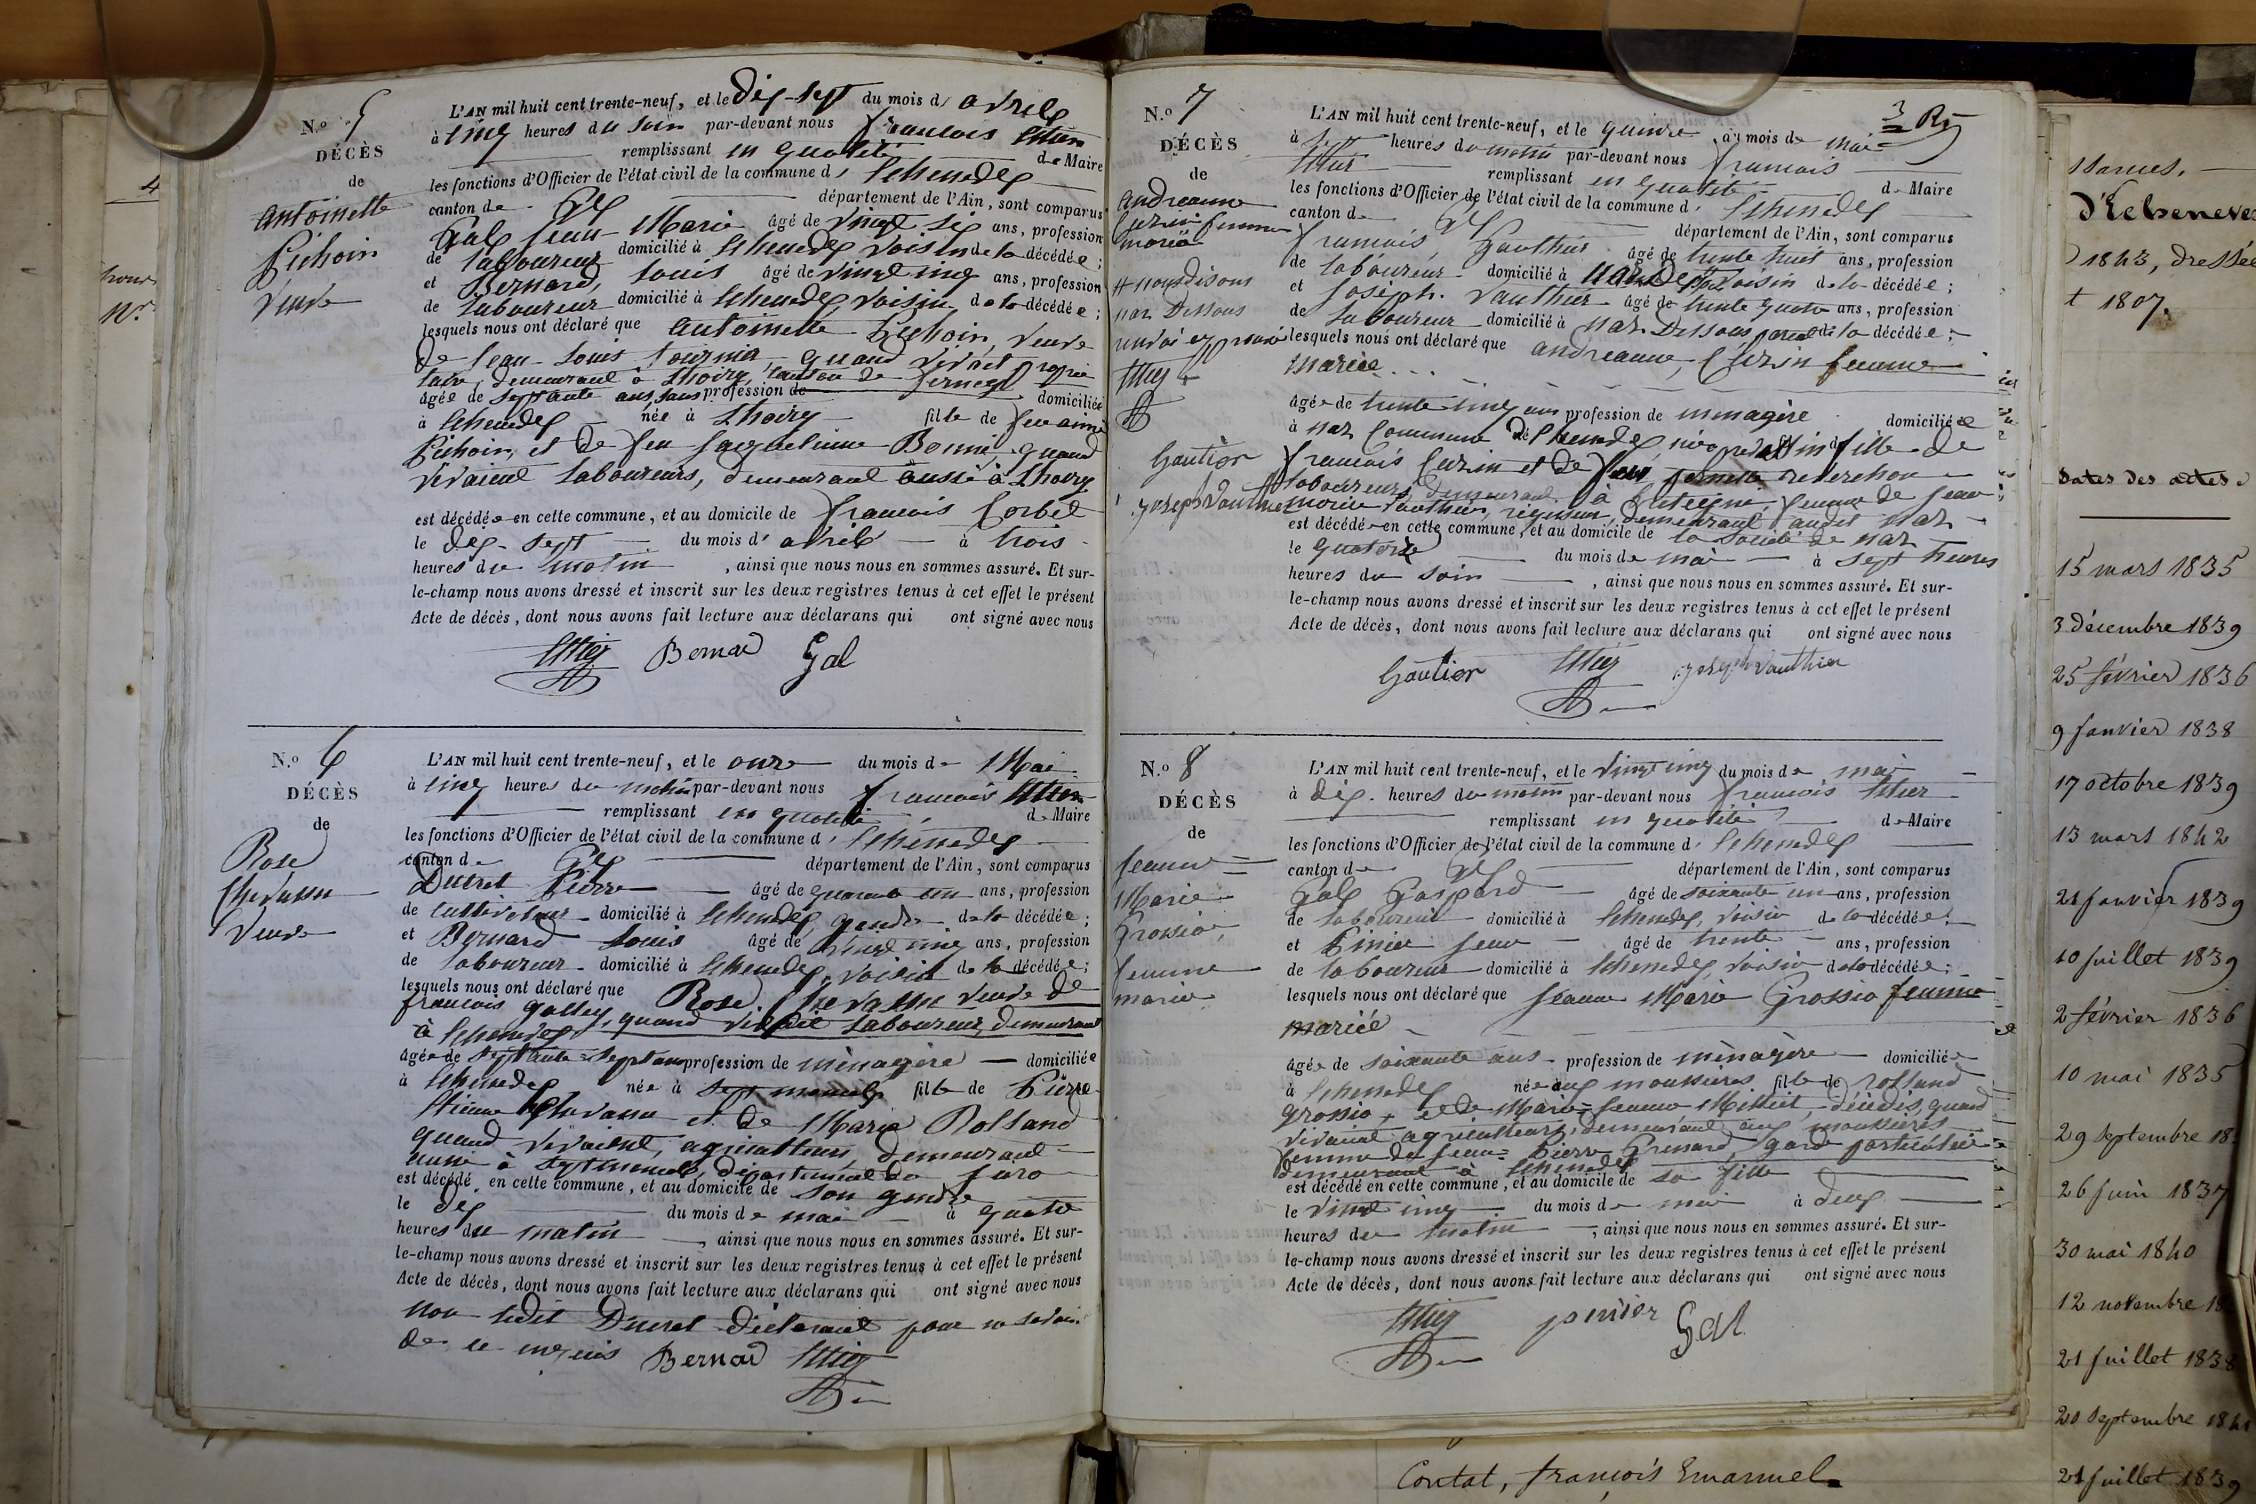 N.o 5
DÉCÈS
de
Antoinette
Pichoin
Veuve
L'AN mil huit cent trente-neuf, et le dix-sept du mois d' avril
à cinq heures du soir par-devant nous françois
remplissant en qualité de Maire
les fonctions d'Officier de l'état civil de la commune d' Echenevex
canton de Gex département de l'Ain, sont comparus
Gal Jean-Marie âgé de vingt six ans, profession
de laboureur domicilié à Echenevex voisin de la décédée ;
et Bernard, Louis âgé de vingt cinq ans, profession
de laboureur domicilié à Echenevex, voisin de la décédée ;
lesquels nous ont déclaré que antoinette Pichoin, veuve
de Jean-Louis tournier, quand vivait proprié
taire, demeurant à Thoiry, canton de ferney
âgée de septante ans, sans profession de domiciliée
à Echenevex née à Thoiry fille de feu
Pichoin, et de feu Jacquelinne quand
vivaient laboureurs, demeurant aussi à Thoiry
est décédée en cette commune, et au domicile de françois
le dix-sept du mois d' avril à trois
heures du matin , ainsi que nous nous en sommes assuré. Et sur-
le-champ nous avons dressé et inscrit sur les deux registres tenus à cet effet le présent
Acte de décès, dont nous avons fait lecture aux déclarans qui ont signé avec nous
Bernad Gal
N.o 6
DÉCÈS
de
Rose
Chevassu
Veuve
L'AN mil huit cent trente-neuf, et le onze du mois de Mai
à cinq heures du matin par-devant nous françois
remplissant en qualité de Maire
les fonctions d'Officier de l'état civil de la commune d' Echenevex
canton de Gex département de l'Ain, sont comparus
Ducret Pierre âgé de quarante un ans, profession
de cultivateur domicilié à Echenevex, gendre de la décédée ;
et Bernard Louis âgé de vingt cinq ans, profession
de laboureur domicilié à Echenevex, voisin de la décédée ;
lesquels nous ont déclaré que Rose Chevassu veuve de
françois quand vivait laboureur, demeurant
à Echenevex
âgée de septante-sept ans profession de ménagère domiciliée
à Echenevex née à fille de Pierre
Etienne Chevassu et de Maria Rolland
quand vivaient, agriculteurs, demeurant
aussi à septmoncel, département du Jura
est décédé en cette commune, et au domicile de son gendre
le dix du mois de mai à quatre
heures du matin , ainsi que nous nous en sommes assuré. Et sur-
le-champ nous avons dressé et inscrit sur les deux registres tenus à cet effet le présent
Acte de décès, dont nous avons fait lecture aux déclarans qui ont signé avec nous
non ledit Ducret déclarant pour ne savoir
de ce requis Bernad
N.o 7
DÉCÈS
de
andreanne
Curzin femme
mariée
# nous disons
naz Dessous
renvoi approuvé
Gautier
joseph vauthier
3
L'AN mil huit cent trente-neuf, et le quinze du mois de mai
à sept heures du matin par-devant nous françois
remplissant en qualité de Maire
les fonctions d'Officier de l'état civil de la commune d' Echenevex
canton de Gex département de l'Ain, sont comparus
françois Gauthier âgé de trente huit ans, profession
de laboureur domicilié à voisin de la décédée ;
et Joseph Vauthier âgé de trente quatre ans, profession
de laboureur domicilié à naz Dessous parent de la décédée ;
lesquels nous ont déclaré que andreanne, Curzin femme
mariée
âgée de trente cinq ans profession de ménagère domiciliée
à naz commune d'Echenevex, fille de
françois Curzin et de reverchon
laboureurs demeurant à femme de Jean
marie Vauthier, demeurant audit naz
est décédée en cette commune, et au domicile de la société de naz
le quatorze du mois de mai à sept heures
heures du soir , ainsi que nous nous en sommes assuré. Et sur-
le-champ nous avons dressé et inscrit sur les deux registres tenus à cet effet le présent
Acte de décès, dont nous avons fait lecture aux déclarans qui ont signé avec nous
Gautier joseph vauthier
N.o 8
DÉCÈS
de
Jeanne
Marie
Grossio,
femme
mariée
L'AN mil huit cent trente-neuf, et le vingt cinq du mois de mai
à dix heures du matin par-devant nous françois
remplissant en qualité de Maire
les fonctions d'Officier de l'état civil de la commune d' Echenevex
canton de Gex département de l'Ain, sont comparus
Gal Gaspard âgé de soixante un ans, profession
de laboureur domicilié à Echenevex, voisin de la décédée ;
et Pinier Jean âgé de trente ans, profession
de laboureur domicilié à Echenevex, voisin de la décédée ;
lesquels nous ont déclaré que Jeanne Marie Grossio femme
mariée
âgée de soixante ans profession de ménagère domiciliée
à Echenevex née aux moussières fille de Rolland
grossio, et de Marie-Jeanne décédés, quand
vivaient agriculteurs, demeurant aux moussières
femme de Jean-Pierre garde particulier
demeurant à Echenevex
est décédé en cette commune, et au domicile de sa fille
le vingt cinq du mois de mai à deux
heures du matin , ainsi que nous nous en sommes assuré. Et sur-
le-champ nous avons dressé et inscrit sur les deux registres tenus à cet effet le présent
Acte de décès, dont nous avons fait lecture aux déclarans qui ont signé avec nous
pinier Gal
ssances.
d'Echeneve
1843, dressée
t 1807.
Dates des actes.
15 mars 1835
3 décembre 1839
25 février 1836
9 janvier 1838
17 octobre 1839
13 mars 1842
21 janvier 1839
10 juillet 1839
2 février 1836
10 mai 1835
29 septembre 18
26 juin 1837
30 mai 1840
12 novembre 18
21 juillet 1838
20 septembre 184
21 juillet 1839
Contat, françois Emanuel.